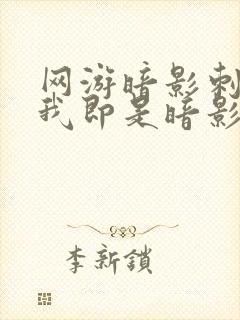 网游暗影刺
我即是暗影
李新鎖